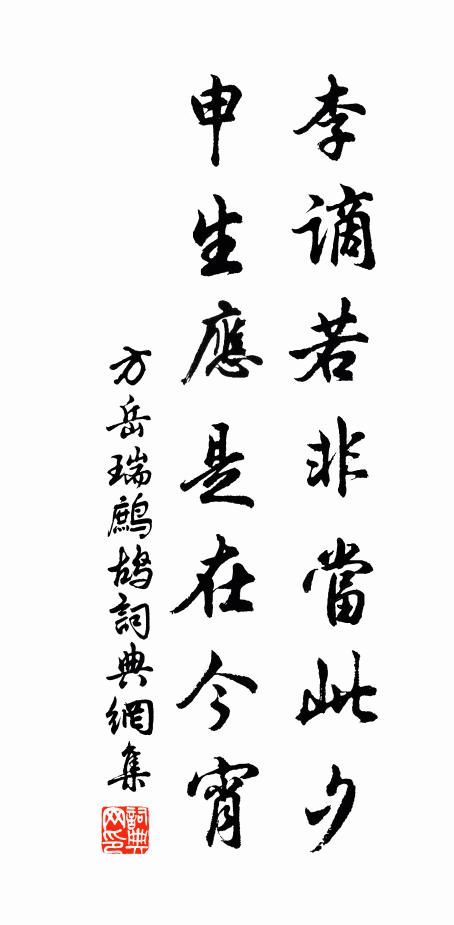 李謫若非當此夕
申生應是在今宵
方岳瑞鷓鴣詞典網集
詞典網印